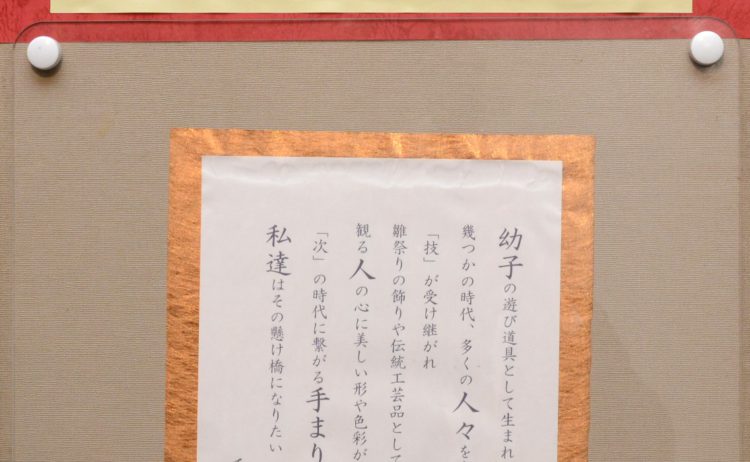 幼子の遊び道具として生まれ
幾つかの時代、多くの人々を
「技」が受け継がれ
雛祭りの飾りや伝統工芸品として
観る人の心に美しい形や色彩が
「次」の時代に繋がる手まり
私達はその懸け橋になりたい